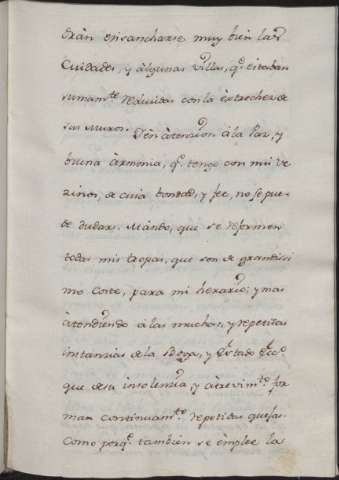 dràn ensancharse muy bien las
Ciudades, y àlgunas Villas, q.e estaban
sumam.te reducidas con la èstrechez de
sus Muros. Y en àtencion à la Paz, y
buena àrmonia, q.e tengo con mis ve
zinos, de cuia bondad, y fee, no se pue-
de dudar. Mando, que se reformen
todas mis tropas, que son de grandissi
mo coste, para mi herario; y mas
àtendiendo à las muchas, y repetitas
instancias de la Yglesia, y Estado Ecc.o
que de su insolencia, y àtrevim.to for
man continuam.te repetidas quejas.
Como porq.e tambien se èmplee la